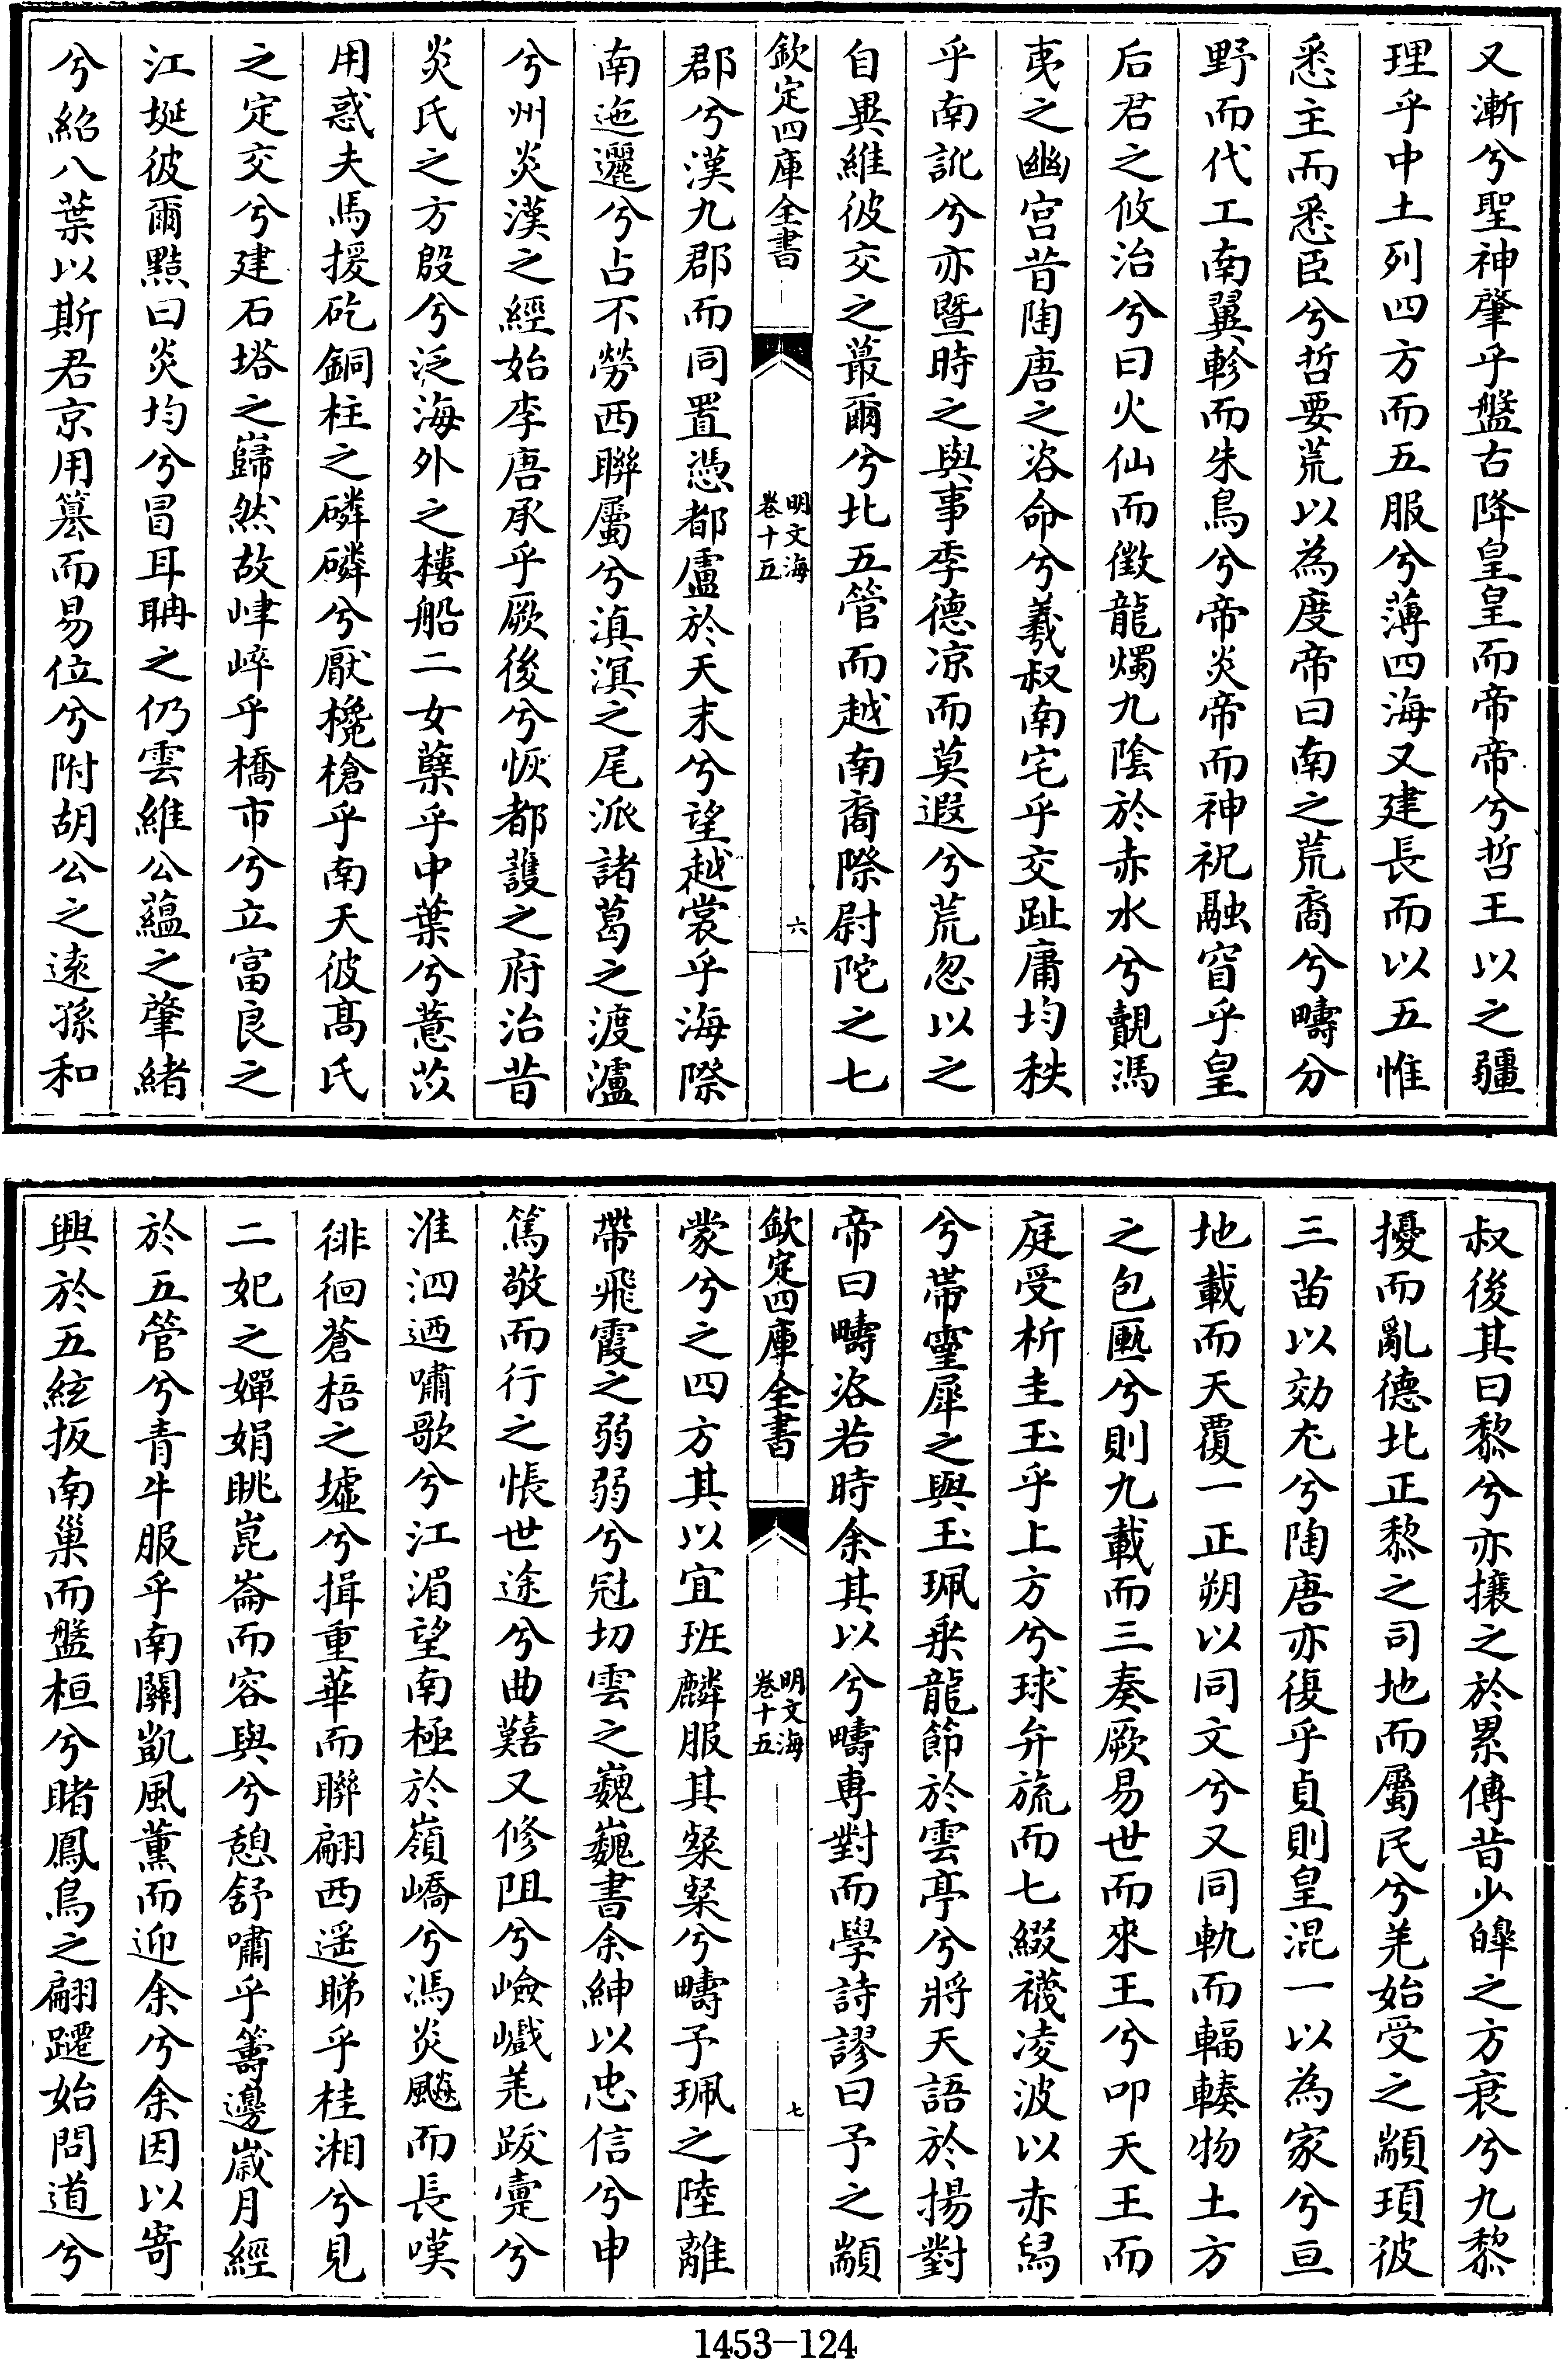 又漸兮聖神肇乎盤古降皇皇而帝帝兮哲王以之疆
理乎中土列四方而五服兮薄四海又建長而以五惟
悉主而悉臣兮哲要荒以為度帝曰南之荒裔兮疇分
野而代工南翼軫而朱鳥兮帝炎帝而神祝融窅乎皇
后君之攸治兮曰火仙而徵龍燭九陰於赤水兮覿馮
夷之幽宫昔陶唐之咨命兮羲叔南宅乎交趾庸均秩
乎南訛兮亦暨時之與事季德凉而莫遐兮荒忽以之
自異維彼交之蕞爾兮北五管而越南裔際尉陀之七
欽定四庫全書
明文海
卷十五
六
郡兮漢九郡而同置憑都盧於天末兮望越裳乎海際
南迤邐兮占不勞西聯屬兮滇溟之尾派諸葛之渡瀘
兮州炎漢之經始李唐承乎厥後兮恢都護之府治昔
炎氏之方殷兮泛海外之樓船二女蘖乎中葉兮薏苡
用惑夫馬援矻銅柱之磷磷兮厭欃槍乎南天彼髙氏
之定交兮建石塔之巋然故峍崪乎橋市兮立富良之
江埏彼爾㸃曰炎均兮冒耳聃之仍雲維公藴之肇緒
兮紹八葉以斯君京用簒而易位兮附胡公之逺孫和
叔後其曰黎兮亦攘之於累傳昔少皥之方衰兮九黎
擾而亂德北正黎之司地而屬民兮羌始受之顓頊彼
三苗以効尤兮陶唐亦復乎貞則皇混一以為家兮亘
地載而天覆一正朔以同文兮又同軌而輻輳物土方
之包匭兮則九載而三奏厥易世而來王兮叩天王而
庭受析圭玉乎上方兮球弁旒而七綴襪凌波以赤舄
兮帶靈犀之與玉珮乗龍節於雲亭兮將天語於揚對
帝曰疇咨若時余其以兮疇專對而學詩謬曰予之顓
欽定四庫全書
明文海
卷十五
七
蒙兮之四方其以宜班麟服其粲粲兮疇予珮之陸離
帶飛霞之弱弱兮冠切雲之巍巍書余紳以忠信兮申
篤敬而行之悵世途兮曲囏又修阻兮嶮巇羌跋疐兮
淮泗迺嘯歌兮江湄望南極於嶺嶠兮馮炎颷而長嘆
徘徊蒼梧之墟兮揖重華而聯翩西遥睇乎桂湘兮見
二妃之嬋娟眺崑崙而容與兮憩舒嘯乎籌邊嵗月經
於五管兮青牛服乎南關凱風薫而迎余兮余因以寄
興於五絃扳南巢而盤桓兮睹鳳鳥之翩躚始問道兮
1453-124